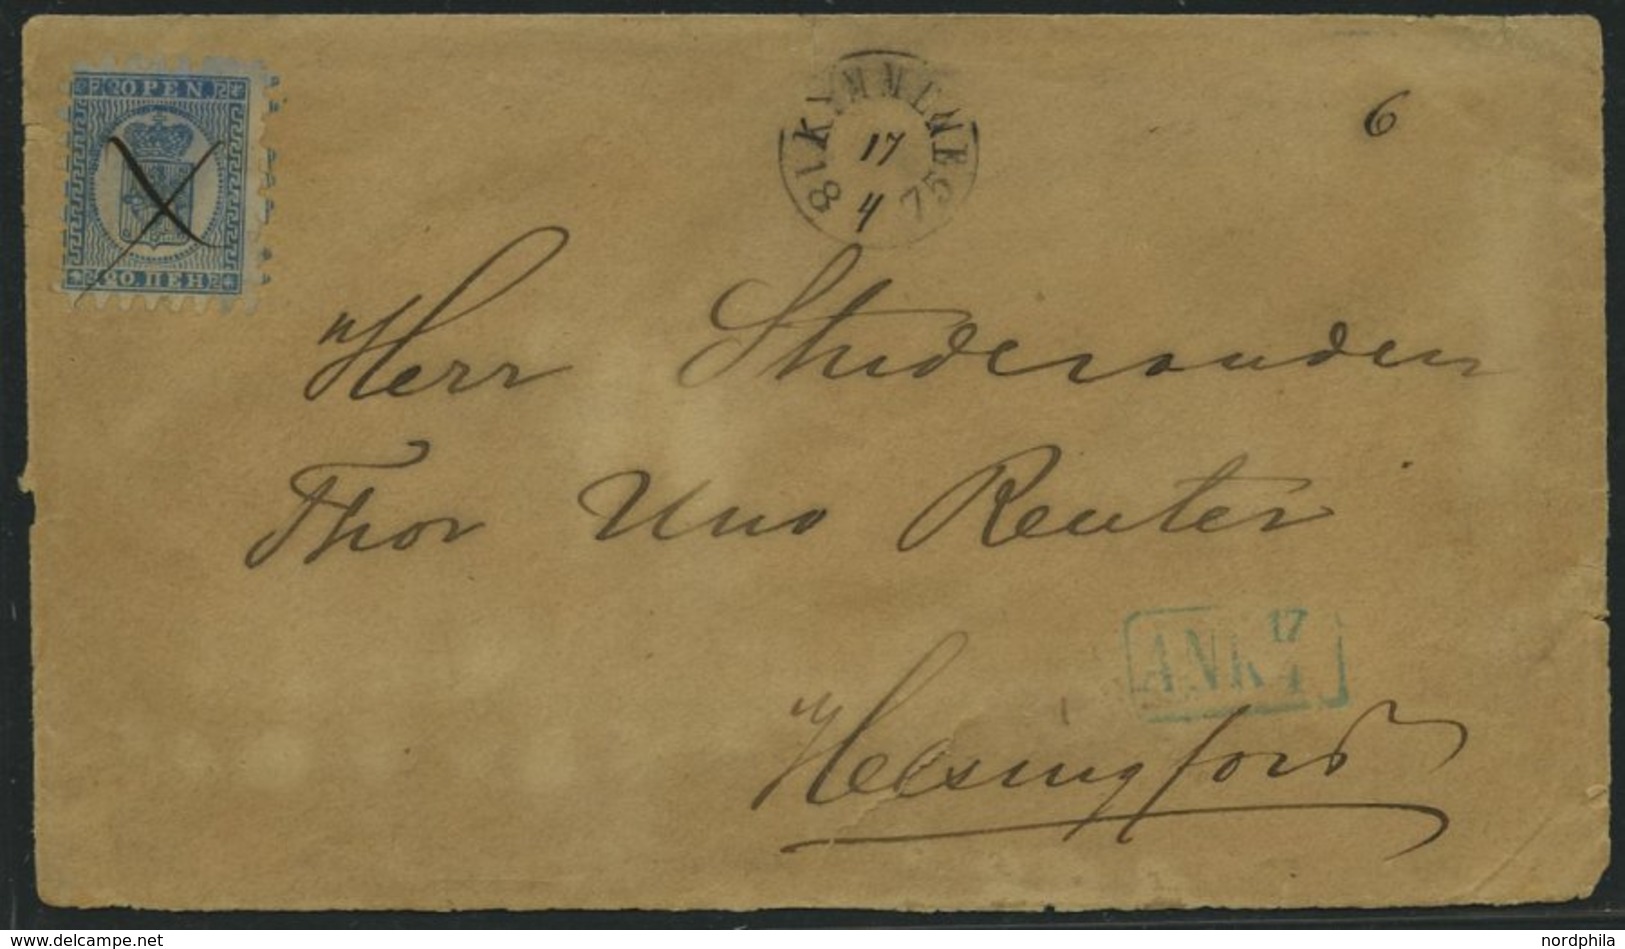 20 PEN.
20. ПЕН
KYMMENE
17
4
1875
6
Herr Studeranden
Thor Uno Reuter
Helsingfors
ANK 17
4
www.delcampe.net
nordphila